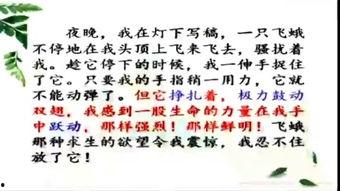 夜晚，我在灯下写稿，一只飞蛾
不停地在我头顶上飞来飞去，骚扰着
我。趁它停下的时候，我一伸手捉住
了它。只要我的手指稍一用力，它就
不能动弹了。但它挣扎着，极力鼓动
双翅，我感到一股生命的力量在我手
中跃动，那样强烈！那样鲜明！飞蛾
那种求生的欲望令我震惊，我忍不住
放了它！